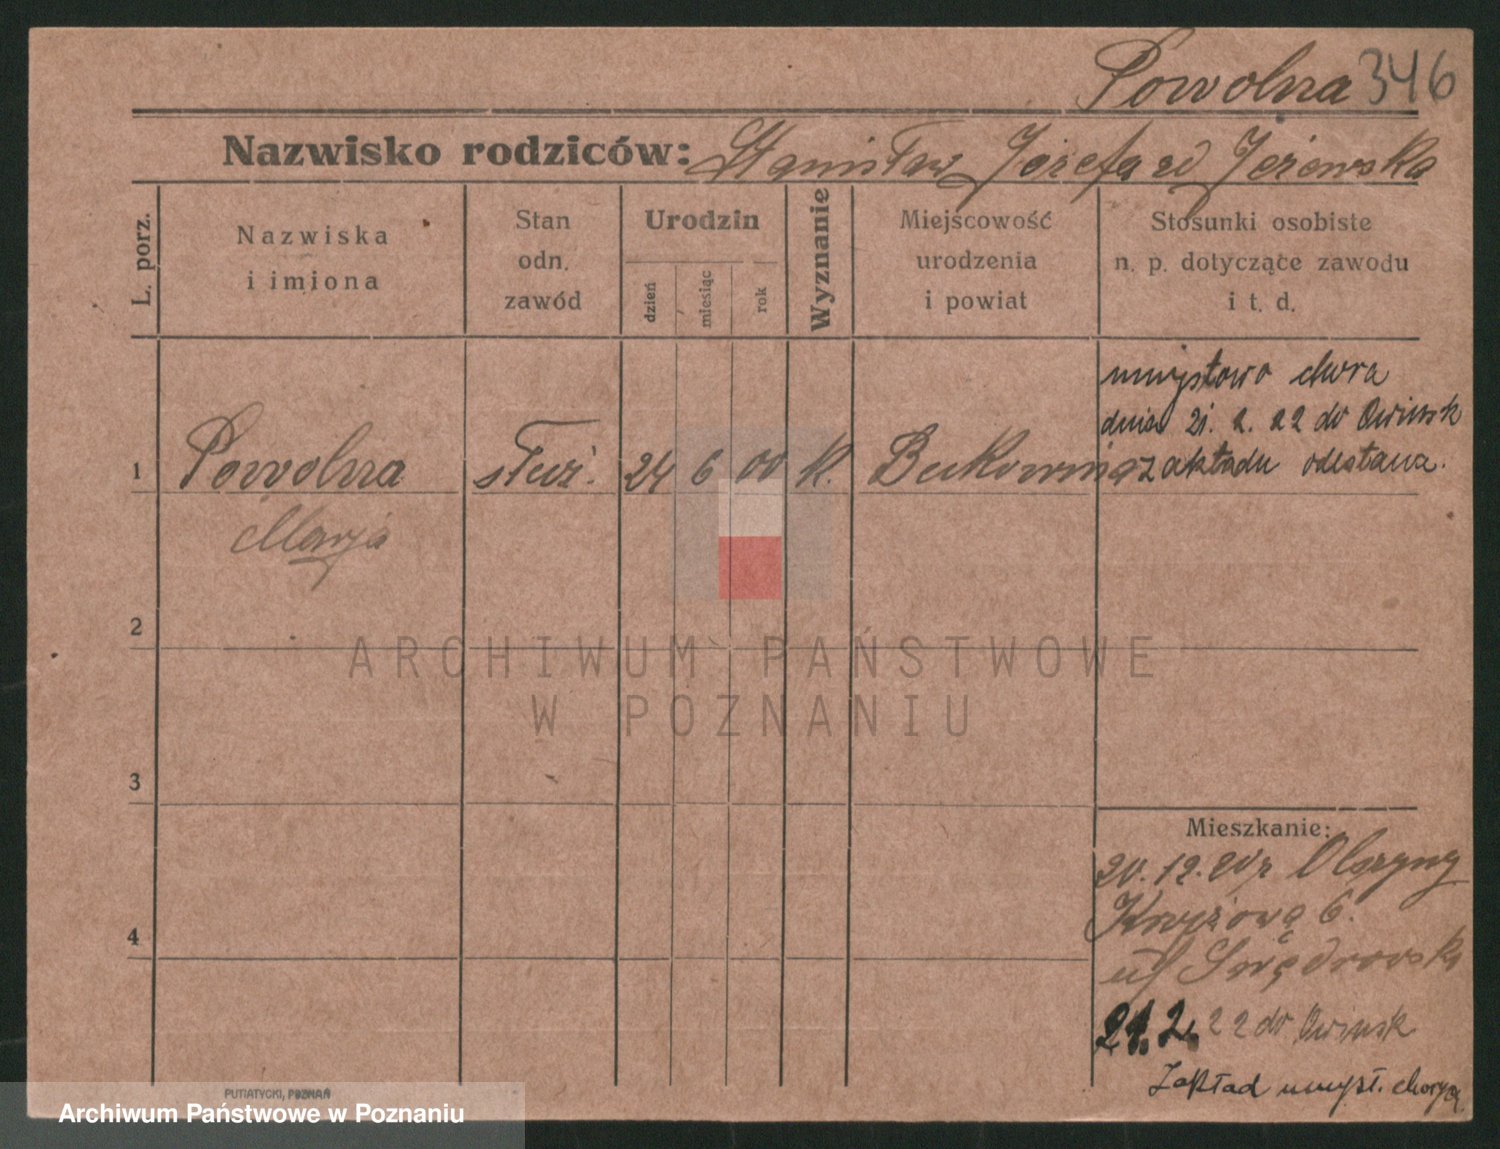 Powolna 346
Nazwisko rodziców: Stanisław Józefa zd Jeżewska
L. porz.
Nazwiska
i imiona
Stan
odn.
zawód
Urodzin
dzień
miesiąc
rok
Wyznanie
Miejscowość
urodzenia
i powiat
Stosunki osobiste
n. p. dotyczące zawodu
i t. d.
umysłowo chora
dnia 21. 2. 22 do Owinsk
zakładu odesłana.
1 Powolna służ. 24 6 00 k. Bukownica
Marja
2
3
4
Mieszkanie:
20.12.20 z Olszyny
Krzyżowa 6.
21. 2. 22 do Owinsk
Zakład umysł. chorych
PUTIATYCKI, POZNAŃ
ARCHIWUM PAŃSTWOWE
W POZNANIU
Archiwum Państwowe w Poznaniu